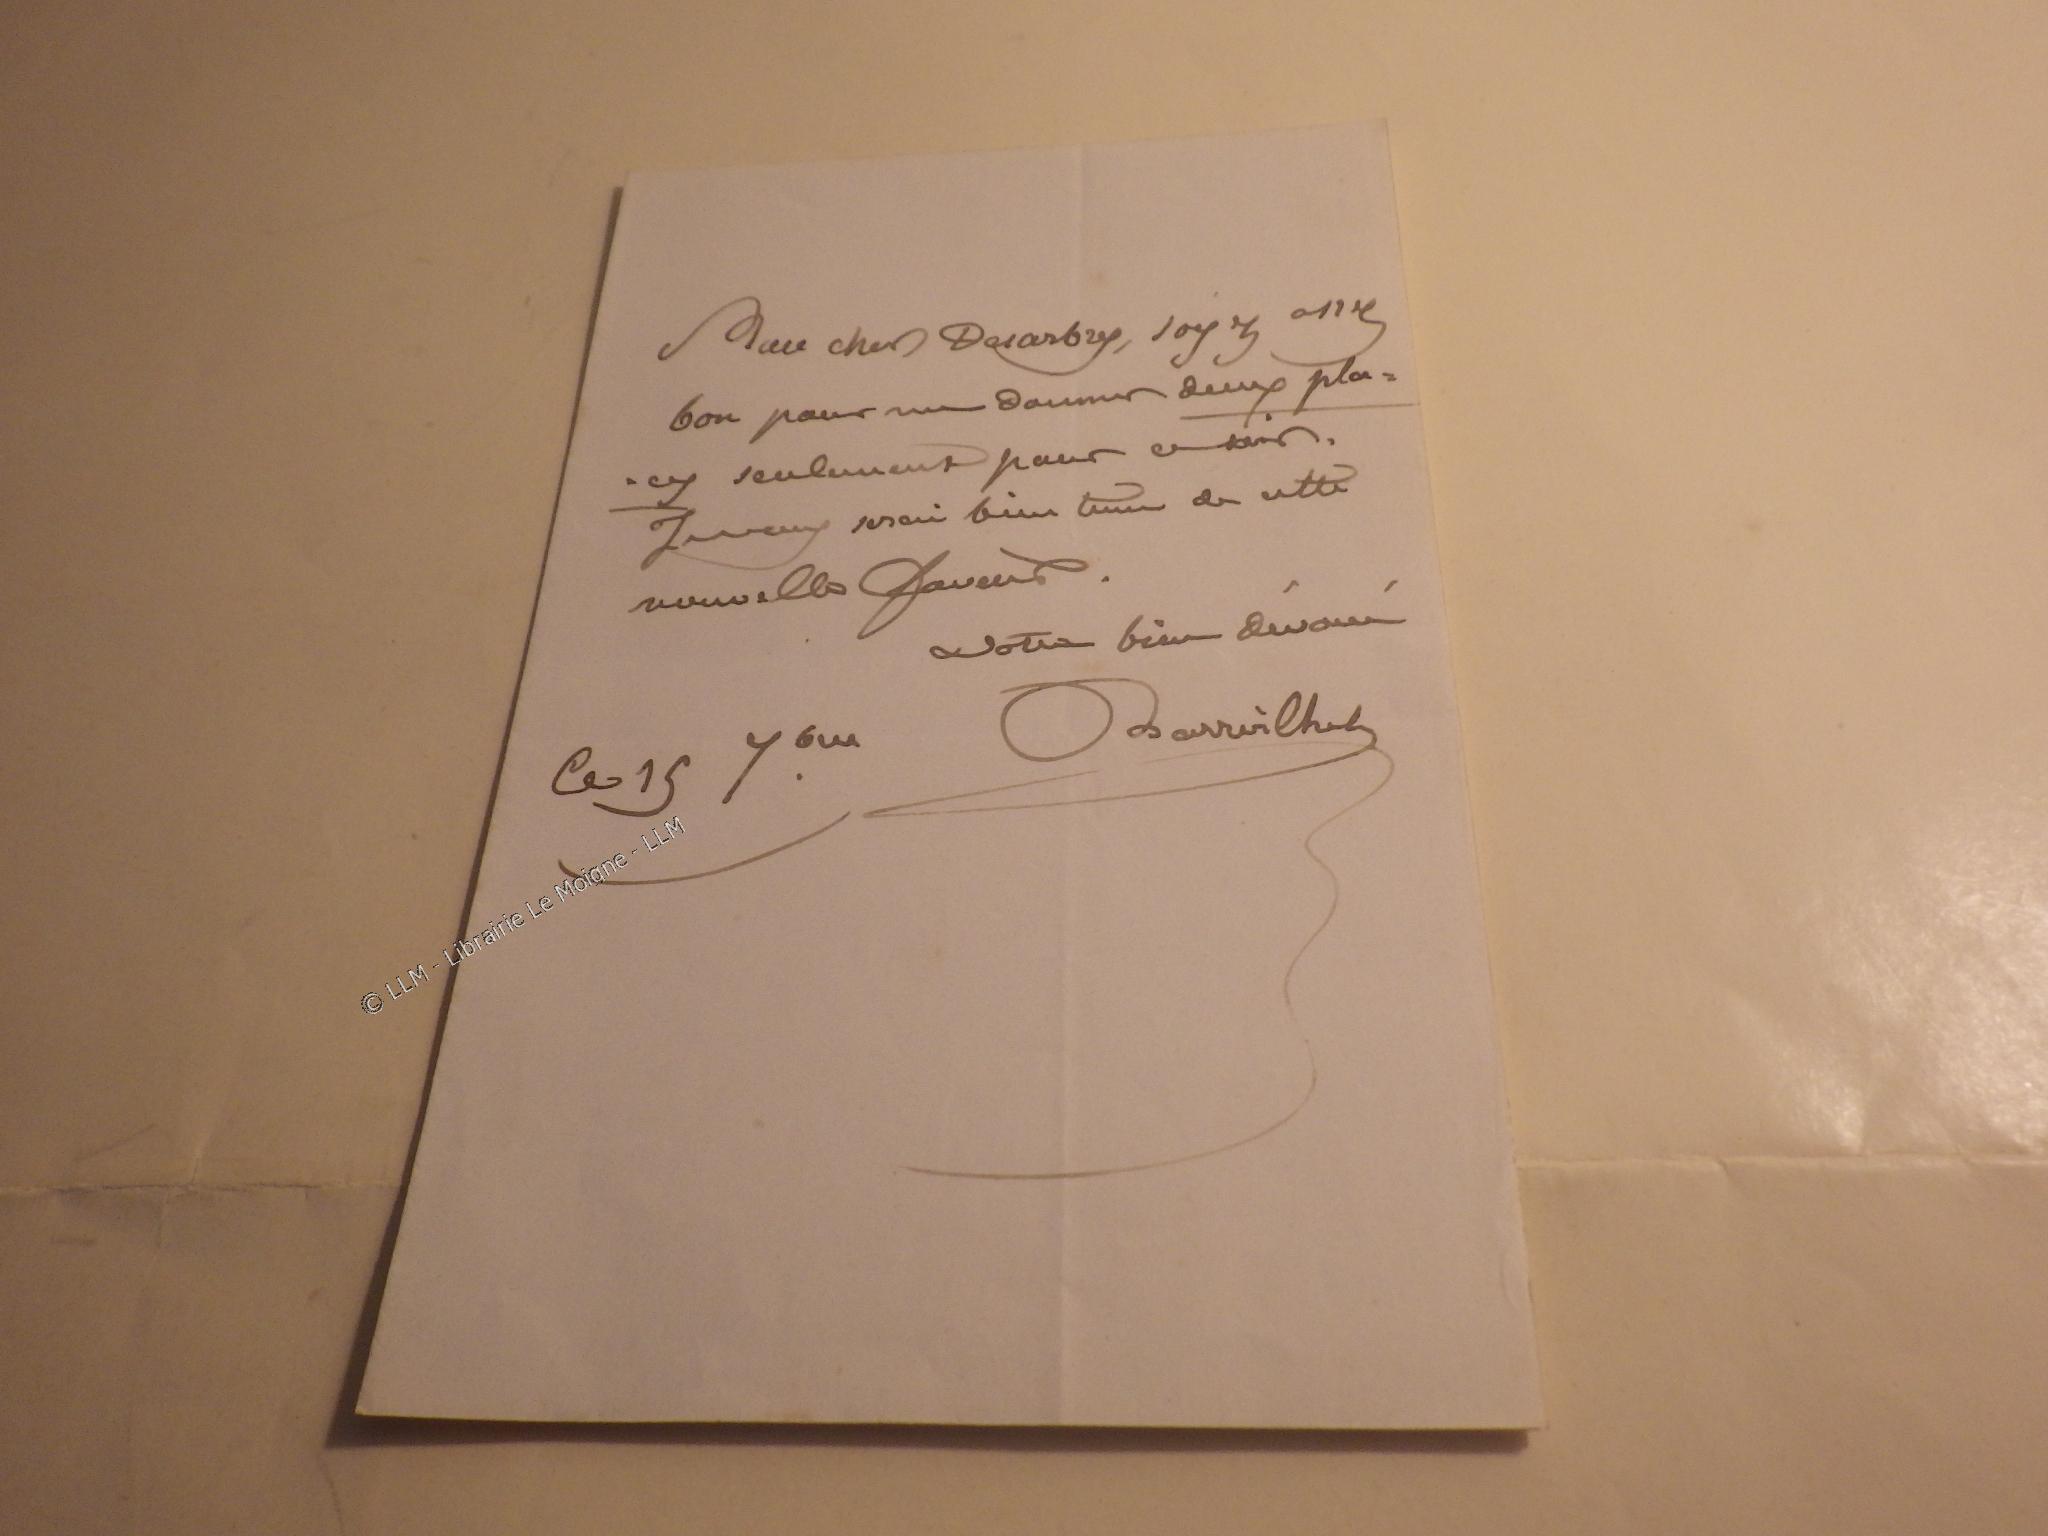 Mon cher Desarbres, soyez assez
bon pour me donner deux pla=
=ces seulement pour ce soir.
Je vous serai bien tenu de cette
nouvelle faveur.
Votre bien dévoué
Barroilhet
Ce 15 7bre
© LLM - Librairie Le Moigne - LLM